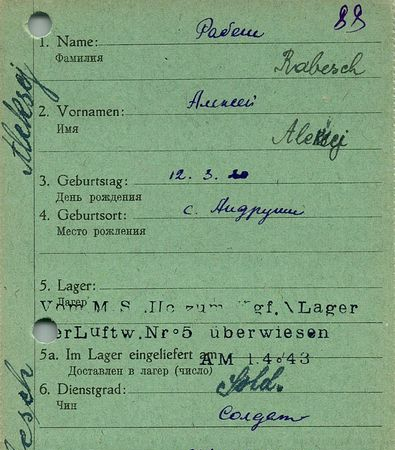 88
1. Name: Рабеш
Фамилия
Rabesch
2. Vornamen: Алексей
Имя
Aleksej
3. Geburtstag: 12. 3.
День рождения
4. Geburtsort: с. Андруши
Место рождения
5. Lager:
Лагер
Vom M.S. IIc zum Kgf.\Lager
erLuftw.Nr°5 überwiesen
5a. Im Lager eingeliefert am AM 1.4°43
Доставлен в лагер (число)
6. Dienstgrad: Sold.
Чин
солдат
Aleksej
esch